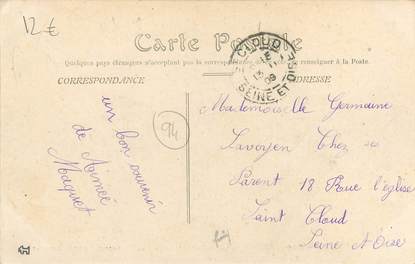 12€
Carte Postale
Quelques pays étrangers n'acceptant pas la correspondance
renseigner à la Poste.
CORRESPONDANCE
ADRESSE
CLOUD
SEINE ET OISE
09
94
un bon souvenir
de Aimée
Maquet
Mademoiselle Germaine
Savoyen Chez ses
Parent 18 Rue l'église
Saint Cloud
Seine et Oise